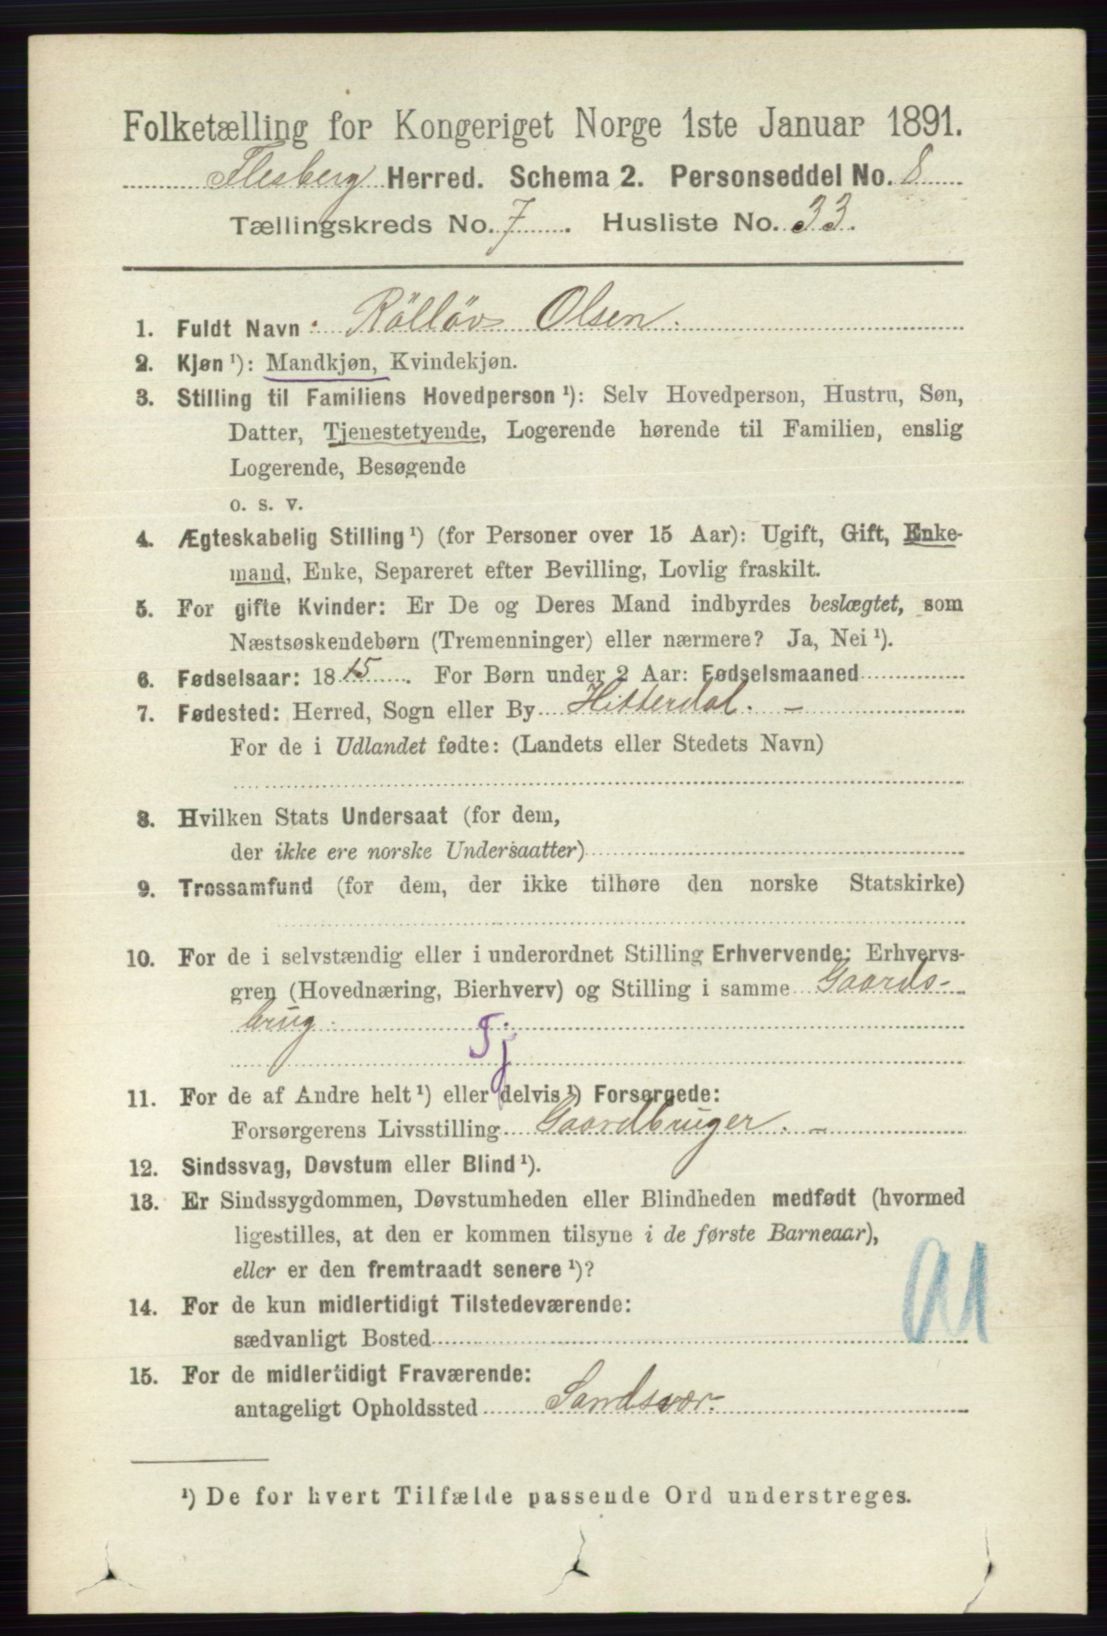 Folketælling for Kongeriget Norge 1ste Januar 1891.
Flesberg Herred. Schema 2. Personseddel No. 8
Tællingskreds No. 7. Husliste No. 33.
1. Fuldt Navn. Rölløv Olsen.
2. Kjøn ¹): Mandkjøn, Kvindekjøn.
3. Stilling til Familiens Hovedperson ¹): Selv Hovedperson, Hustru, Søn,
Datter, Tjenestetyende, Logerende hørende til Familien, enslig
Logerende, Besøgende
o. s. v.
4. Ægteskabelig Stilling ¹) (for Personer over 15 Aar): Ugift, Gift, Enke-
mand, Enke, Separeret efter Bevilling, Lovlig fraskilt.
5. For gifte Kvinder: Er De og Deres Mand indbyrdes beslægtet, som
Næstsøskendebørn (Tremenninger) eller nærmere? Ja, Nei ¹).
6. Fødselsaar: 1815. For Børn under 2 Aar: Fødselsmaaned
7. Fødested: Herred, Sogn eller By Hitterdal. –
For de i Udlandet fødte: (Landets eller Stedets Navn)
8. Hvilken Stats Undersaat (for dem,
der ikke ere norske Undersaatter)
9. Trossamfund (for dem, der ikke tilhøre den norske Statskirke)
10. For de i selvstændig eller i underordnet Stilling Erhvervende: Erhvervs-
gren (Hovednæring, Bierhverv) og Stilling i samme Gaards-
brug.
Tj
11. For de af Andre helt ¹) eller delvis ¹) Forsørgede:
Forsørgerens Livsstilling Gaardbruger. –
12. Sindssvag, Døvstum eller Blind ¹).
13. Er Sindssygdommen, Døvstumheden eller Blindheden medfødt (hvormed
ligestilles, at den er kommen tilsyne i de første Barneaar),
eller er den fremtraadt senere ¹)?
14. For de kun midlertidigt Tilstedeværende:
sædvanligt Bosted
15. For de midlertidigt Fraværende:
antageligt Opholdssted Sandsvær.
¹) De for hvert Tilfælde passende Ord understreges.